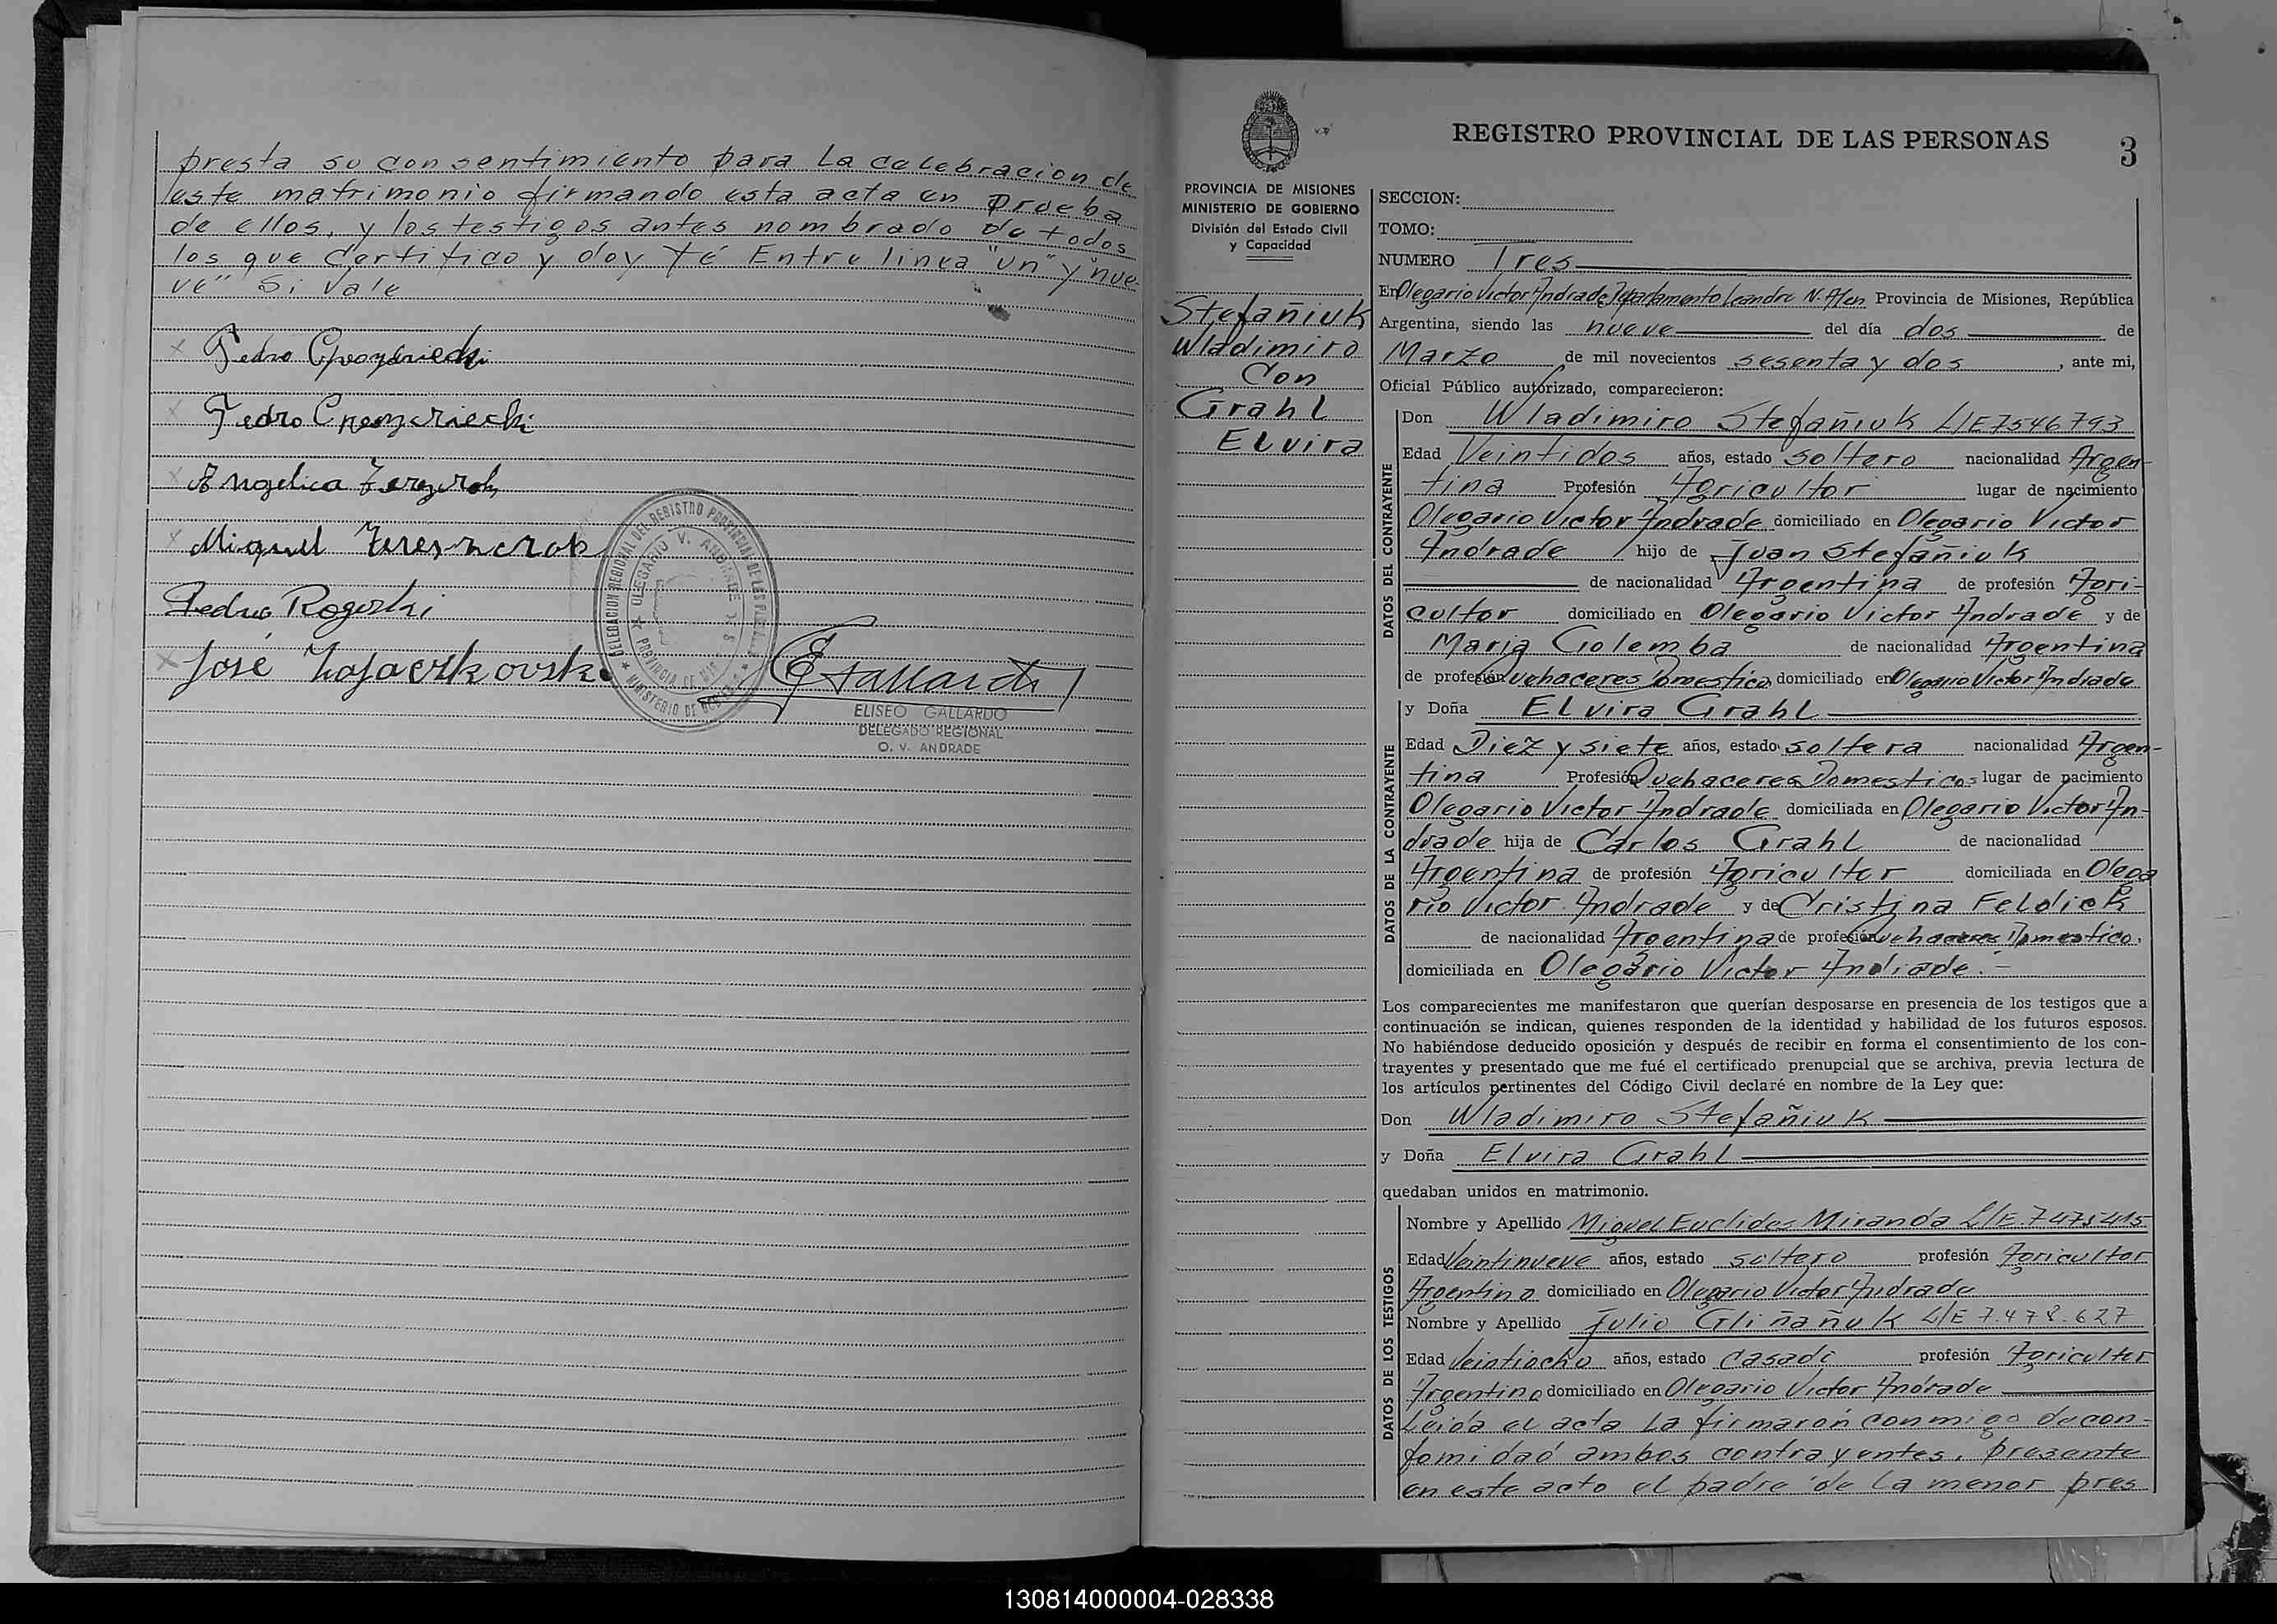 presta su consentimiento para la celebracion de
este matrimonio firmando esta acta en prueba
de ellos, y los testigos antes nombrado de todos
los que certifico y doy fé Entre linea "un" y "nue-
ve" Si vale
Pedro
Pedro
Angelica
Miguel
Pedro Rogoski
José
DELEGACION REGIONAL DEL REGISTRO PROVINCIAL DE LAS PERSONAS
OLEGARIO V. ANDRADE
PROVINCIA DE MIS
MINISTERIO DE GOBIERNO
EGallardo
ELISEO GALLARDO
DELEGADO REGIONAL
O. V. ANDRADE
PROVINCIA DE MISIONES
MINISTERIO DE GOBIERNO
División del Estado Civil
y Capacidad
Stefañiuk
Wladimiro
Con
Grahl
Elvira
REGISTRO PROVINCIAL DE LAS PERSONAS
3
SECCION:
TOMO:
NUMERO Tres
En Olegario Victor Andrade, Departamento Leandro N. Alen Provincia de Misiones, República
Argentina, siendo las nueve del día dos de
Marzo de mil novecientos sesenta y dos, ante mi,
Oficial Público autorizado, comparecieron:
DATOS DEL CONTRAYENTE
Don Wladimiro Stefañiuk L/E 7546793
Edad Veintidos años, estado soltero nacionalidad Argen-
tina Profesión Agricultor lugar de nacimiento
Olegario Victor Andrade domiciliado en Olegario Victor
Andrade hijo de Juan Stefañiuk
de nacionalidad Argentina de profesión Agri-
cultor domiciliado en Olegario Victor Andrade y de
Maria Golemba de nacionalidad Argentina
de profesión Quehaceres Domestico domiciliado en Olegario Victor Andrade
DATOS DE LA CONTRAYENTE
y Doña Elvira Grahl
Edad Diez y siete años, estado soltera nacionalidad Argen-
tina Profesión Quehaceres Domesticos lugar de nacimiento
Olegario Victor Andrade domiciliada en Olegario Victor An-
drade hija de Carlos Grahl de nacionalidad
Argentina de profesión Agricultor domiciliada en Olega
rio Victor Andrade y de Cristina Feldick
de nacionalidad Argentina de profesión Quehaceres Domestico,
domiciliada en Olegario Victor Andrade.-
Los comparecientes me manifestaron que querían desposarse en presencia de los testigos que a
continuación se indican, quienes responden de la identidad y habilidad de los futuros esposos.
No habiéndose deducido oposición y después de recibir en forma el consentimiento de los con-
trayentes y presentado que me fué el certificado prenupcial que se archiva, previa lectura de
los artículos pertinentes del Código Civil declaré en nombre de la Ley que:
Don Wladimiro Stefañiuk
y Doña Elvira Grahl
quedaban unidos en matrimonio.
DATOS DE LOS TESTIGOS
Nombre y Apellido Miguel Euclides Miranda L/E 7475415
Edad Veintinueve años, estado soltero profesión Agricultor
Argentino domiciliado en Olegario Victor Andrade
Nombre y Apellido Julio Gliñañuk L/E 7.478.627
Edad Veintiocho años, estado casado profesión Agricultor
Argentino domiciliado en Olegario Victor Andrade
Leida el acta la firmaron conmigo de con-
fomidad ambos contrayentes, presente
en este acto el padre de la menor pres
130814000004-028338